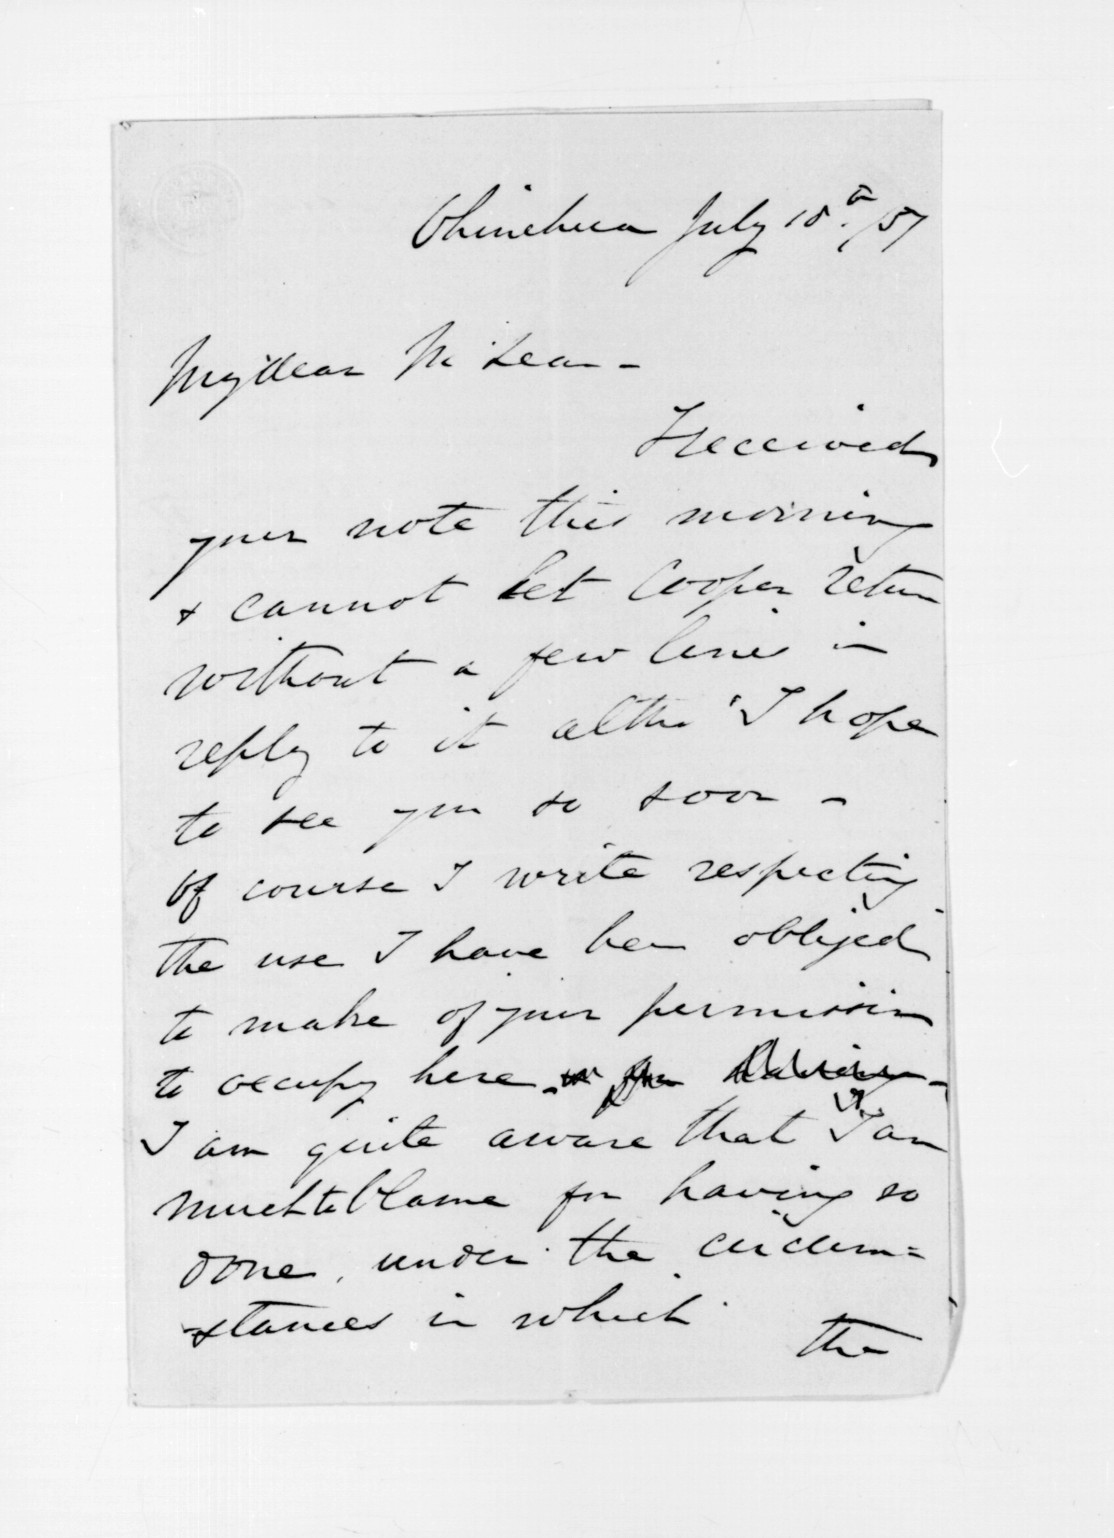 July 18th /57
My dear McLean -
I received
your note this morning
& cannot let Cooper return
without a few lines in
reply to it altho' I hope
to see you so soon -
Of course I write respecting
the use I have been obliged
to make of your permission
to occupy here
I am quite aware that I am
much to blame for having so
done, under the circum=
-stances in which
the